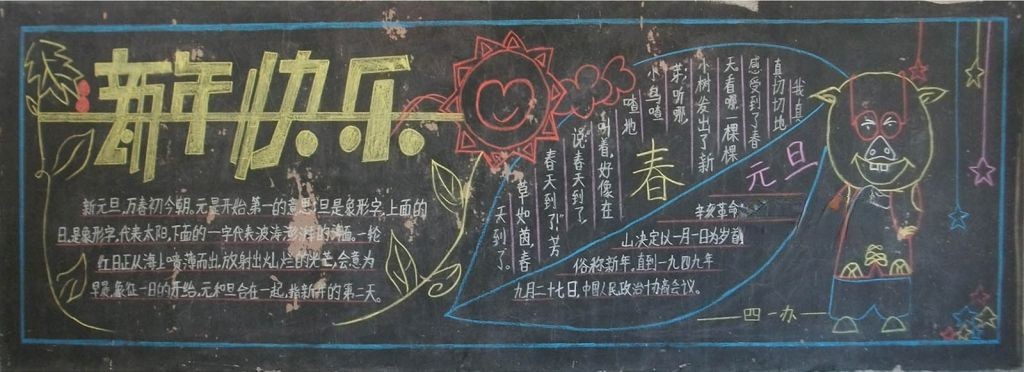 新年快乐
新元旦,万春初今朝。元是开始,第一的意思,旦是象形字,上面的
日,是象形字,代表太阳,下面的一字代表波涛澎湃的海面。一轮
红日正从海上喷薄而出,放射出灿烂的光芒,会意为
早晨,象征一日的开始。元和旦合在一起,指新年的第一天。
我真
真切切地
感受到了春
天看哪一棵
小树发出了新
芽;听哪,
小鸟喳
喳地
叫着,好像在
说春天到了,
春天到了,芳
草如茵,春
天到了。
春
元旦
辛亥革命,
山决定以一月一日为岁首
俗称新年,直到一九四九年
九月二十七日,中国人民政治协商会议。
四一办